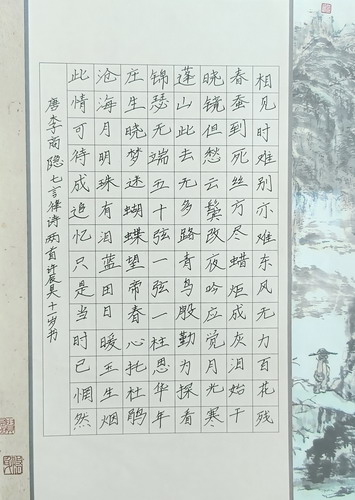 相见时难别亦难东风无力百花残
春蚕到死丝方尽蜡炬成灰泪始干
晓镜但愁云鬓改夜吟应觉月光寒
蓬山此去无多路青鸟殷勤为探看
锦瑟无端五十弦一弦一柱思华年
庄生晓梦迷蝴蝶望帝春心托杜鹃
沧海月明珠有泪蓝田日暖玉生烟
此情可待成追忆只是当时已惘然
唐李商隐七言律诗两首 许昊十一岁书